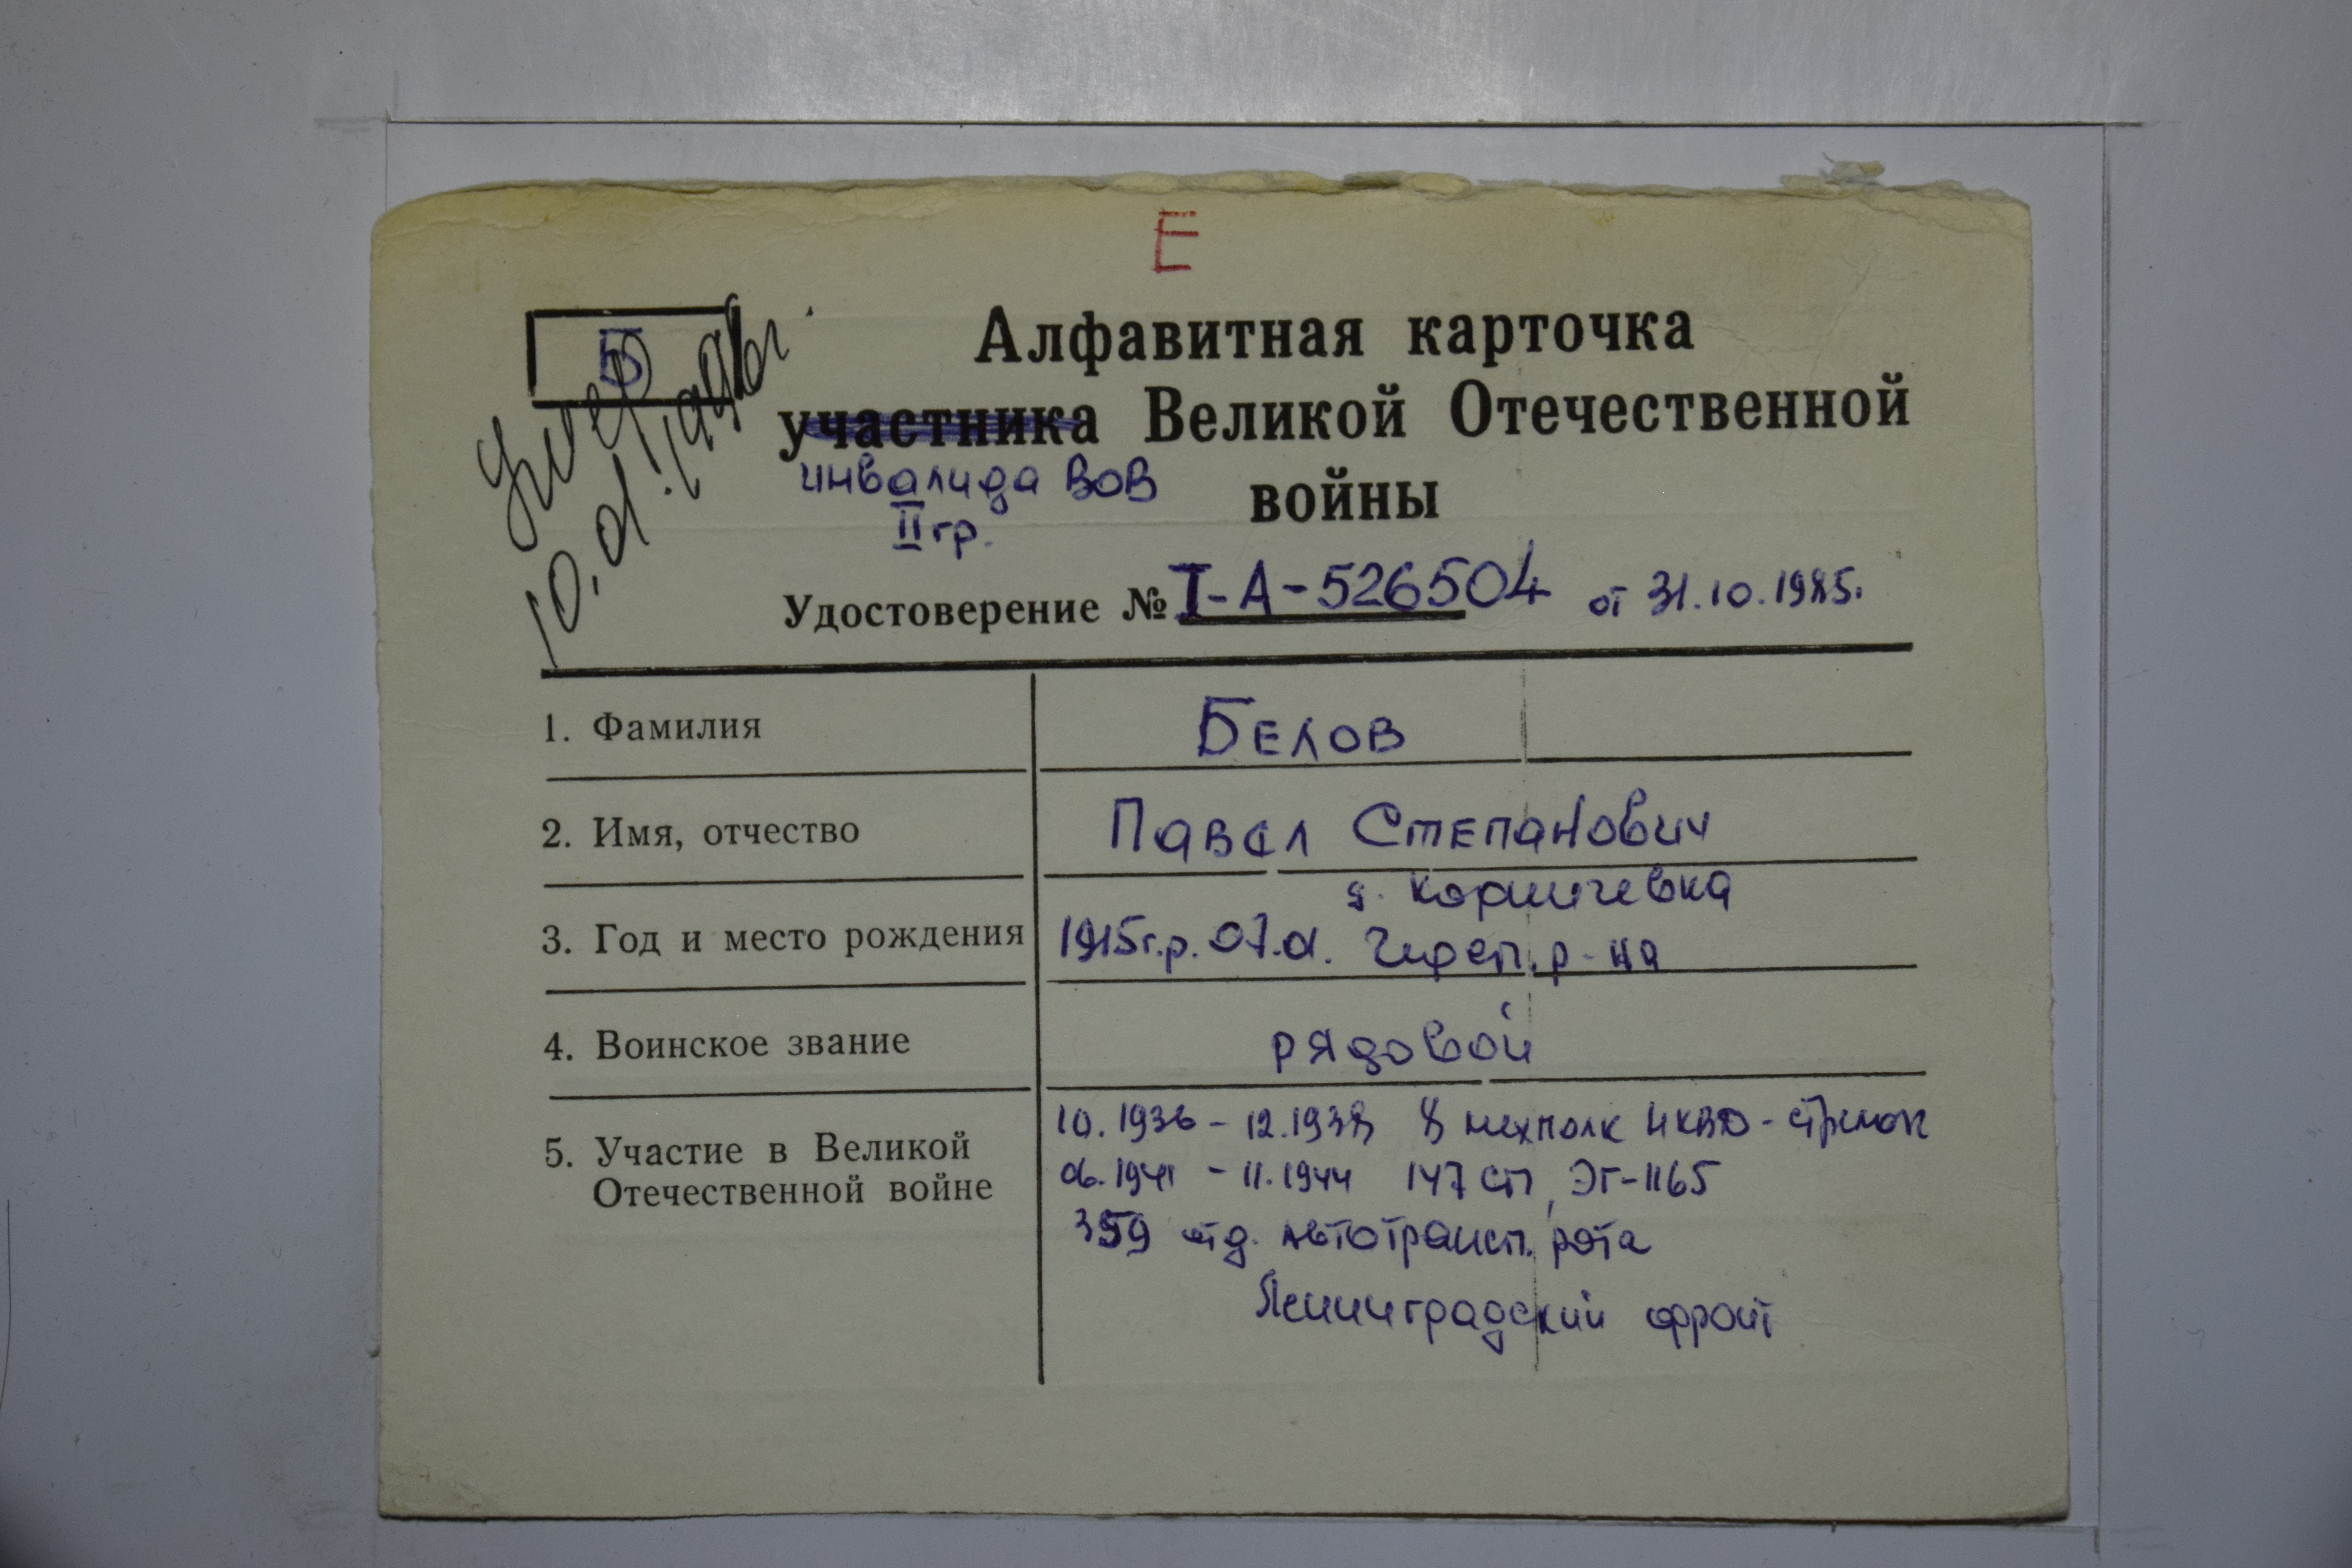 Е
Б
Умер
10.01.1996г.
Алфавитная карточка
участника Великой Отечественной
инвалида ВОВ
войны
II гр.
Удостоверение № I-А-526504 от 31.10.1985г.
1. Фамилия
Белов
2. Имя, отчество
Павел Степанович
д. Коршичевка
3. Год и место рождения
1915г.р. 07.01. Череп. р-на
4. Воинское звание
рядовой
5. Участие в Великой
Отечественной войне
10.1936 - 12.1938 8 мехполк НКВД - стрелок
06.1941 - 11.1944 147 сп, ЭГ-1165
359 отд. автотрансп. рота
Ленинградский фронт